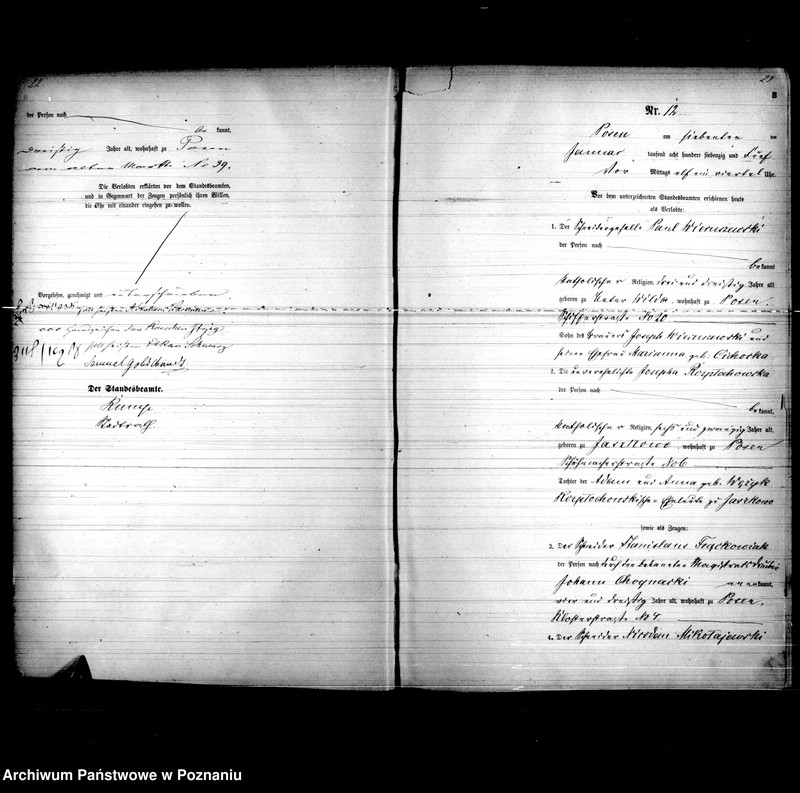 22
der Person nach
be kannt,
dreißig Jahre alt, wohnhaft zu Posen
am alten Markt No 39.
Die Verlobten erklärten vor dem Standesbeamten,
und in Gegenwart der Zeugen persönlich ihren Willen,
die Ehe mit einander eingehen zu wollen.
Vorgelesen, genehmigt und unterschrieben.
Samuel Goldschmidt
Der Standesbeamte.
Stadtrath
23
B
Nr. 12
Posen am siebenten ten
Januar tausend acht hundert siebenzig und fünf
Vor Mittags elf ein viertel Uhr.
Vor dem unterzeichneten Standesbeamten erschienen heute
als Verlobte:
1. Der Schneidergeselle Paul Wieruszewski
der Person nach
be kannt
katholischer Religion, drei und dreißig Jahre alt
geboren zu Unter Wilda, wohnhaft zu Posen,
Schifferstraße No 20
Sohn des Joseph Wieruszewski und
seiner Ehefrau Marianna geb. Cichocka
2. Die unverehelichte Josepha Rozplochowska
der Person nach
be kannt,
katholischer Religion, sechs und zwanzig Jahre alt,
geboren zu Jaszkowo, wohnhaft zu Posen
Schuhmacherstraße No 6
Tochter der Adam und Anna geb.
Rozplochowskischen Eheleute zu Jaszkowo
sowie als Zeugen:
3. Der Schneider Stanislaus Frąckowiak
der Person nach durch den bekannten Magistrats
Johann anerkannt,
vier und dreißig Jahre alt, wohnhaft zu Posen,
Klosterstraße No 4.
4. Der Schneider Nicodem Mikołajewski
Archiwum Państwowe w Poznaniu